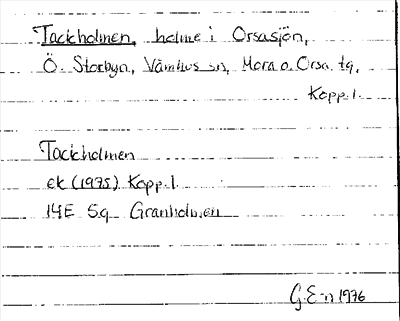 Tackholmen, holme i Orsasjön,
Ö. Storbyn, Våmhus sn, Mora o. Orsa tg,
Kopp. l.
Tackholmen
ek (1975) Kopp. l.
14E 5g Granholmen
G.E-n 1976